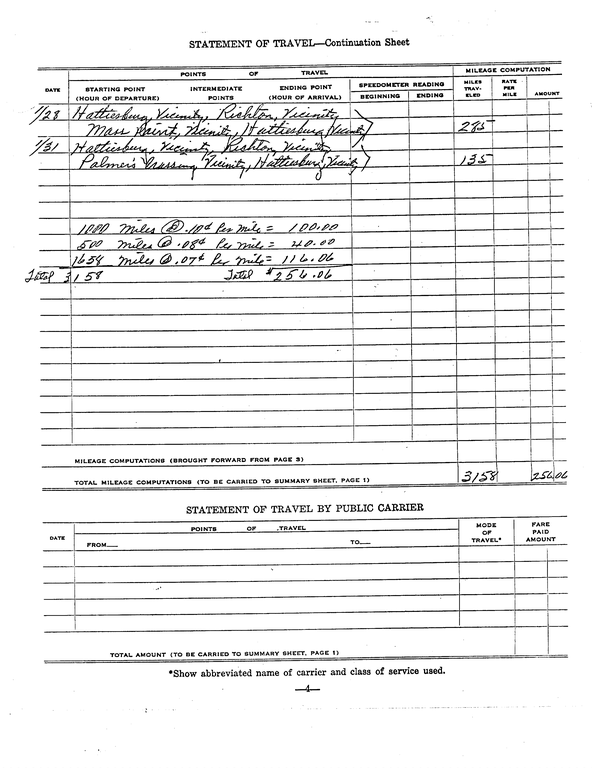 STATEMENT OF TRAVEL—Continuation Sheet
POINTS OF TRAVEL MILEAGE COMPUTATION
DATE STARTING POINT (HOUR OF DEPARTURE) INTERMEDIATE POINTS ENDING POINT (HOUR OF ARRIVAL) SPEEDOMETER READING BEGINNING ENDING MILES TRAV- ELED RATE PER MILE AMOUNT
1/28 Hattiesburg, Vicinity, Richton, Vicinity
Moss Point, Vicinity, Hattiesburg, Vicinity 285
1/31 Hattiesburg, Vicinity, Richton, Vicinity
Palmer's Crossing Vicinity, Hattiesburg, Vicinity 135
1000 Miles @ .10¢ Per Mile = 100.00
500 Miles @ .08¢ Per Mile = 40.00
1658 Miles @ .07¢ Per Mile = 116.06
Total 3158 Total $256.06
MILEAGE COMPUTATIONS (BROUGHT FORWARD FROM PAGE 3)
TOTAL MILEAGE COMPUTATIONS (TO BE CARRIED TO SUMMARY SHEET, PAGE 1) 3158 256.06
STATEMENT OF TRAVEL BY PUBLIC CARRIER
DATE POINTS OF TRAVEL MODE OF TRAVEL* FARE PAID AMOUNT
FROM— TO—
TOTAL AMOUNT (TO BE CARRIED TO SUMMARY SHEET, PAGE 1)
*Show abbreviated name of carrier and class of service used.
—4—